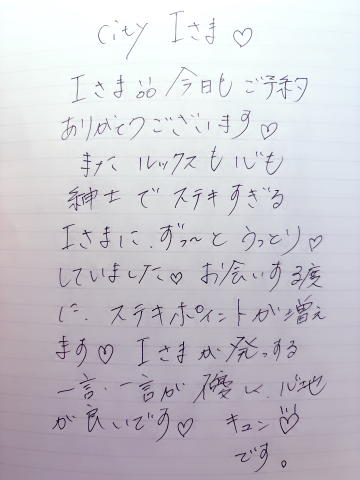 city Iさま♡
Iさま 今日も ご予約
ありがとうございます♡
また ルックスも心も
紳士で ステキすぎる
Iさまに、ずっ〜と うっとり♡
していました♡ お会いする度
に、ステキポイントが増え
ます♡ Iさまが発っする
一言、一言が 優しく、心地
が良いです♡ キュン♡
です。